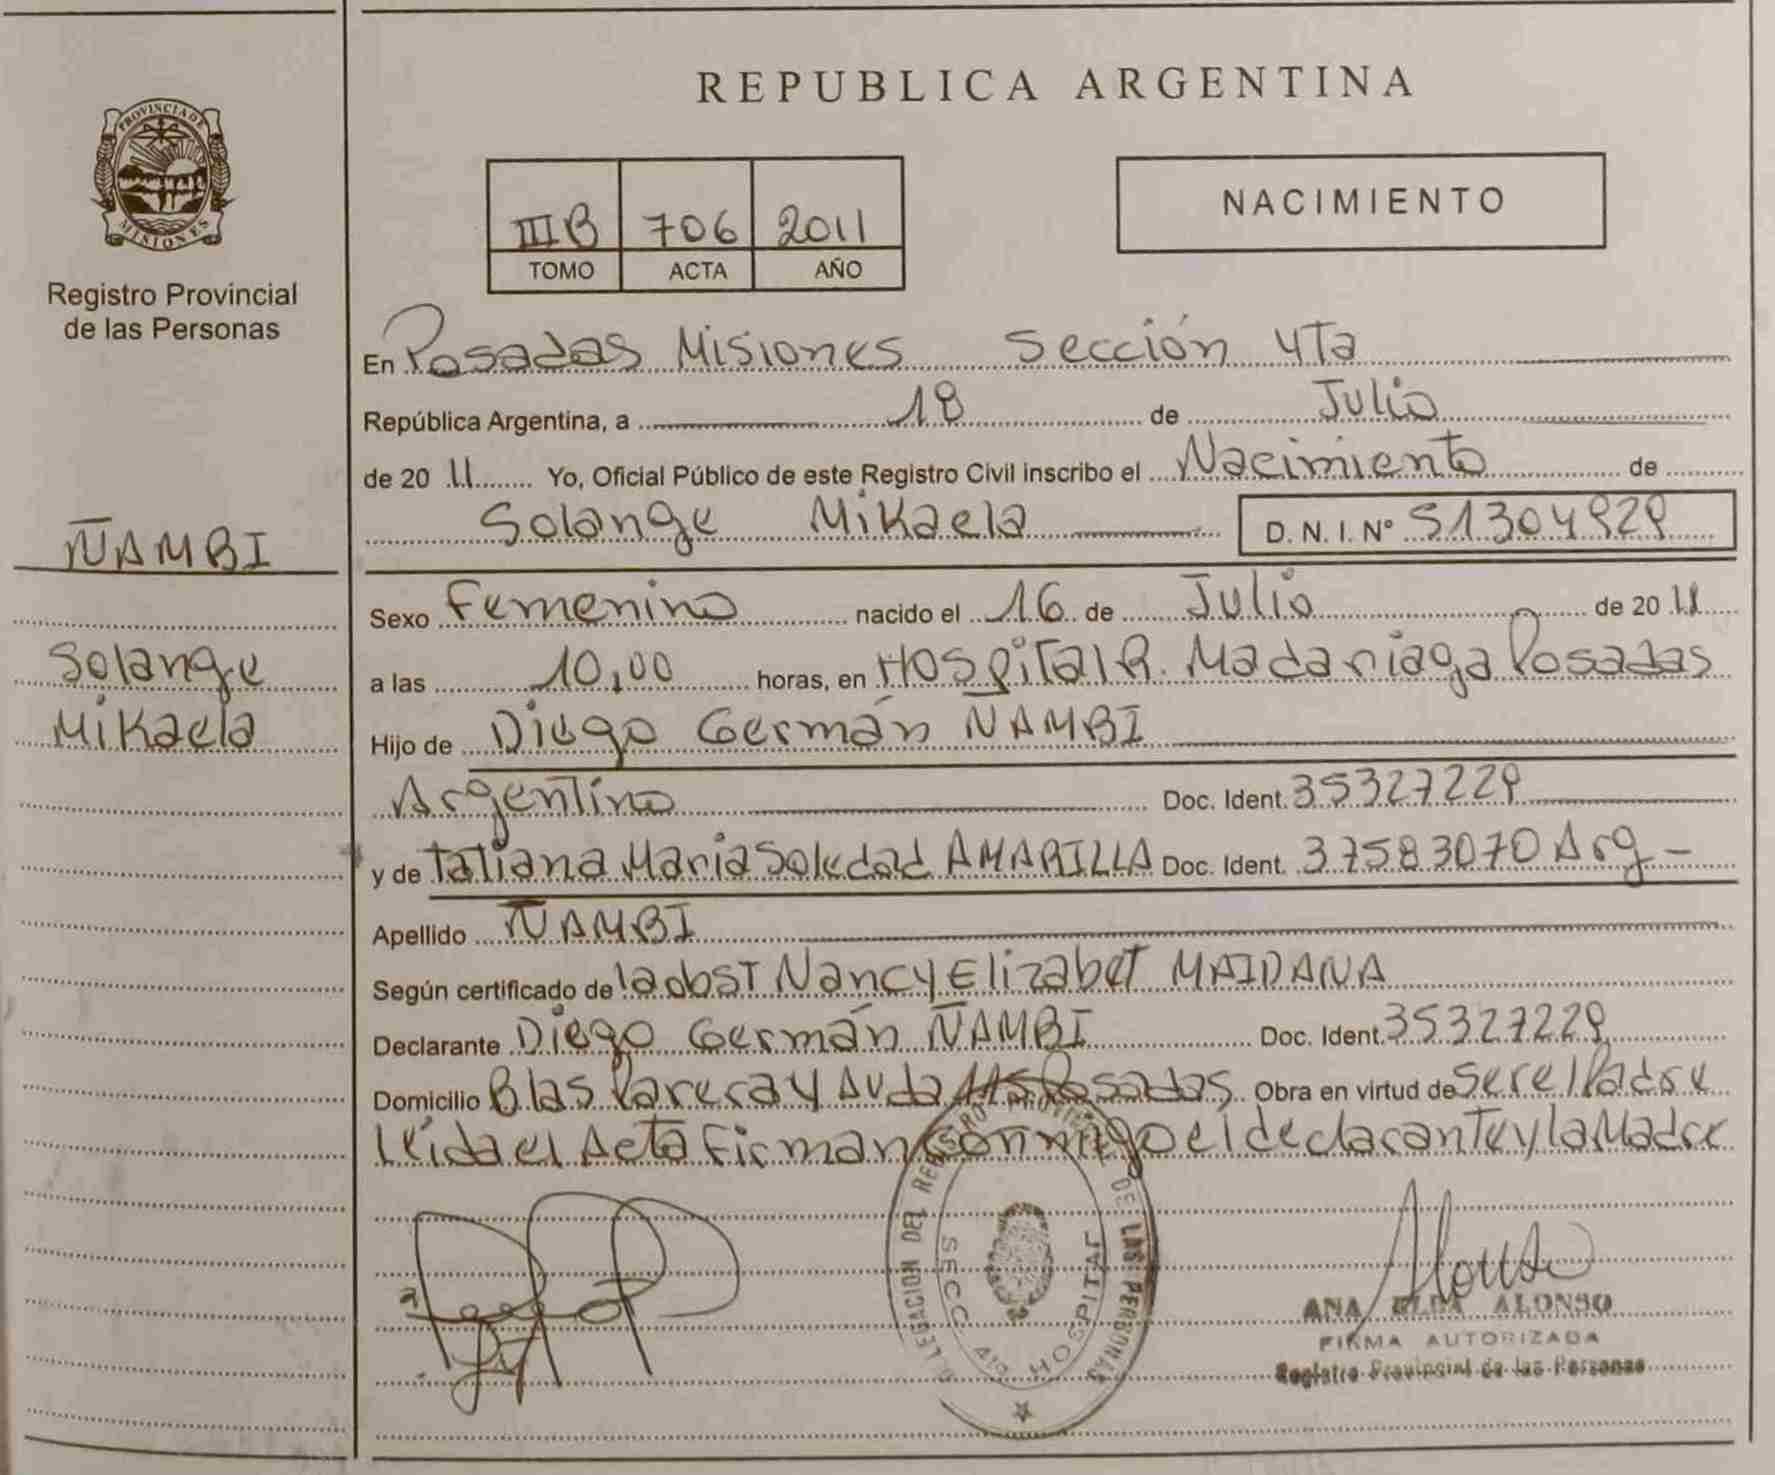 REPUBLICA ARGENTINA
PROVINCIA DE MISIONES
Registro Provincial
de las Personas
IIIB 706 2011
TOMO ACTA AÑO
NACIMIENTO
En Posadas Misiones Sección 4Ta
República Argentina, a 18 de Julio
de 2011 Yo, Oficial Público de este Registro Civil inscribo el Nacimiento de
Solange Mikaela D. N. I. Nº 51304929
ÑAMBI
Solange
Mikaela
Sexo Femenino nacido el 16 de Julio de 2011
a las 10,00 horas, en Hospital R. Madariaga Posadas
Hijo de Diego Germán ÑAMBI
Argentino Doc. Ident. 35327229
y de Tatiana Maria Soledad AMARILLA Doc. Ident. 37583070 Arg -
Apellido ÑAMBI
Según certificado de la obst Nancy Elizabet MAIDANA
Declarante Diego Germán ÑAMBI Doc. Ident. 35327229
Domicilio Blas Parera y Avda Posadas Obra en virtud de ser el Padre
leida el Acta Firman conmigo el declarante y la Madre
DELEGACION DEL REGISTRO PROVINCIAL DE LAS PERSONAS
SECC 4ta HOSPITAL
Alonso
ANA ELDA ALONSO
FIRMA AUTORIZADA
Registro Provincial de las Personas